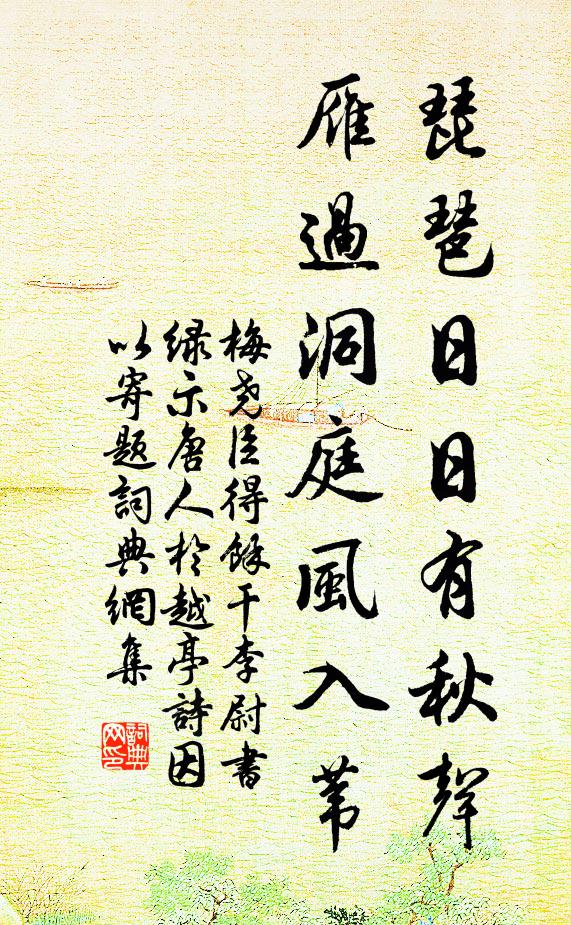 琵琶日日有秋聲
雁過洞庭風入苇
梅尧臣得餘干李尉書
緑示唐人於越亭詩因
以寄题詞典網集
詞典
网印